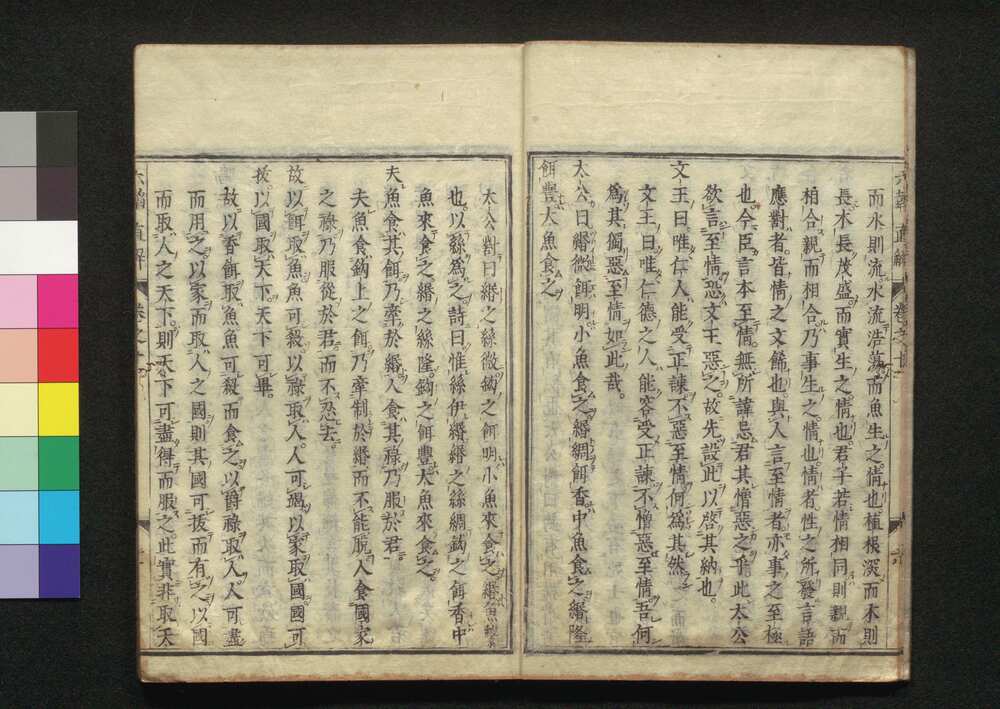 而水則流水流浩蕩而魚生之情也植根深而木則
長木長茂盛而實生之情也君子若情相同則親而
相合親而相合乃事生之情也情者性之所發言語
應對者皆情之文飾也與人言至情者亦事之至極
也今臣言本至情無所諱忌君其憎惡之乎此太公
欲言至情恐文王惡之故先設此以啓其納也
文王曰唯仁人能受正諫不惡至情何為其然
文王曰唯仁德之人能容受正諫不憎惡至情吾何
為其獨惡至情如此哉
太公曰緡微餌明小魚食之緡綢餌香中魚食之緡隆
餌豐大魚食之
太公對曰緡之絲微鈎之餌明小魚來食之緡
也以絲為之詩曰惟絲伊緡緡之絲綢鈎之餌香中
魚來食之緡之絲隆鈎之餌豐大魚來食之
夫魚食其餌乃牽於緡人食其祿乃服於君
夫魚食鈎上之餌乃牽制於緡而不能脫人食國家
之祿乃服從於君而不忍去
故以餌取魚魚可殺以祿取人人可竭以家取國國可
拔以國取天下天下可畢
故以香餌取魚魚可殺而食之以爵祿取人人可盡
而用之以家而取人之國則其國可拔而有之以國
而取人之天下則天下可盡得而服之此實非取天